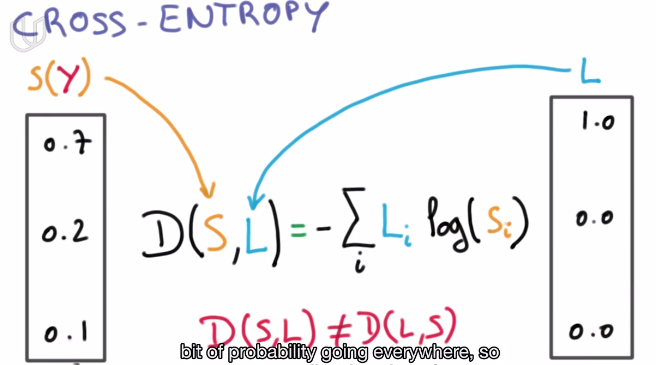 CROSS-ENTROPY
S(Y)
L
0.7
0.2
0.1
D(S,L) = - ∑i Li log(Si)
1.0
0.0
0.0
D(S,L) ≠ D(L,S)
bit of probability going everywhere, so